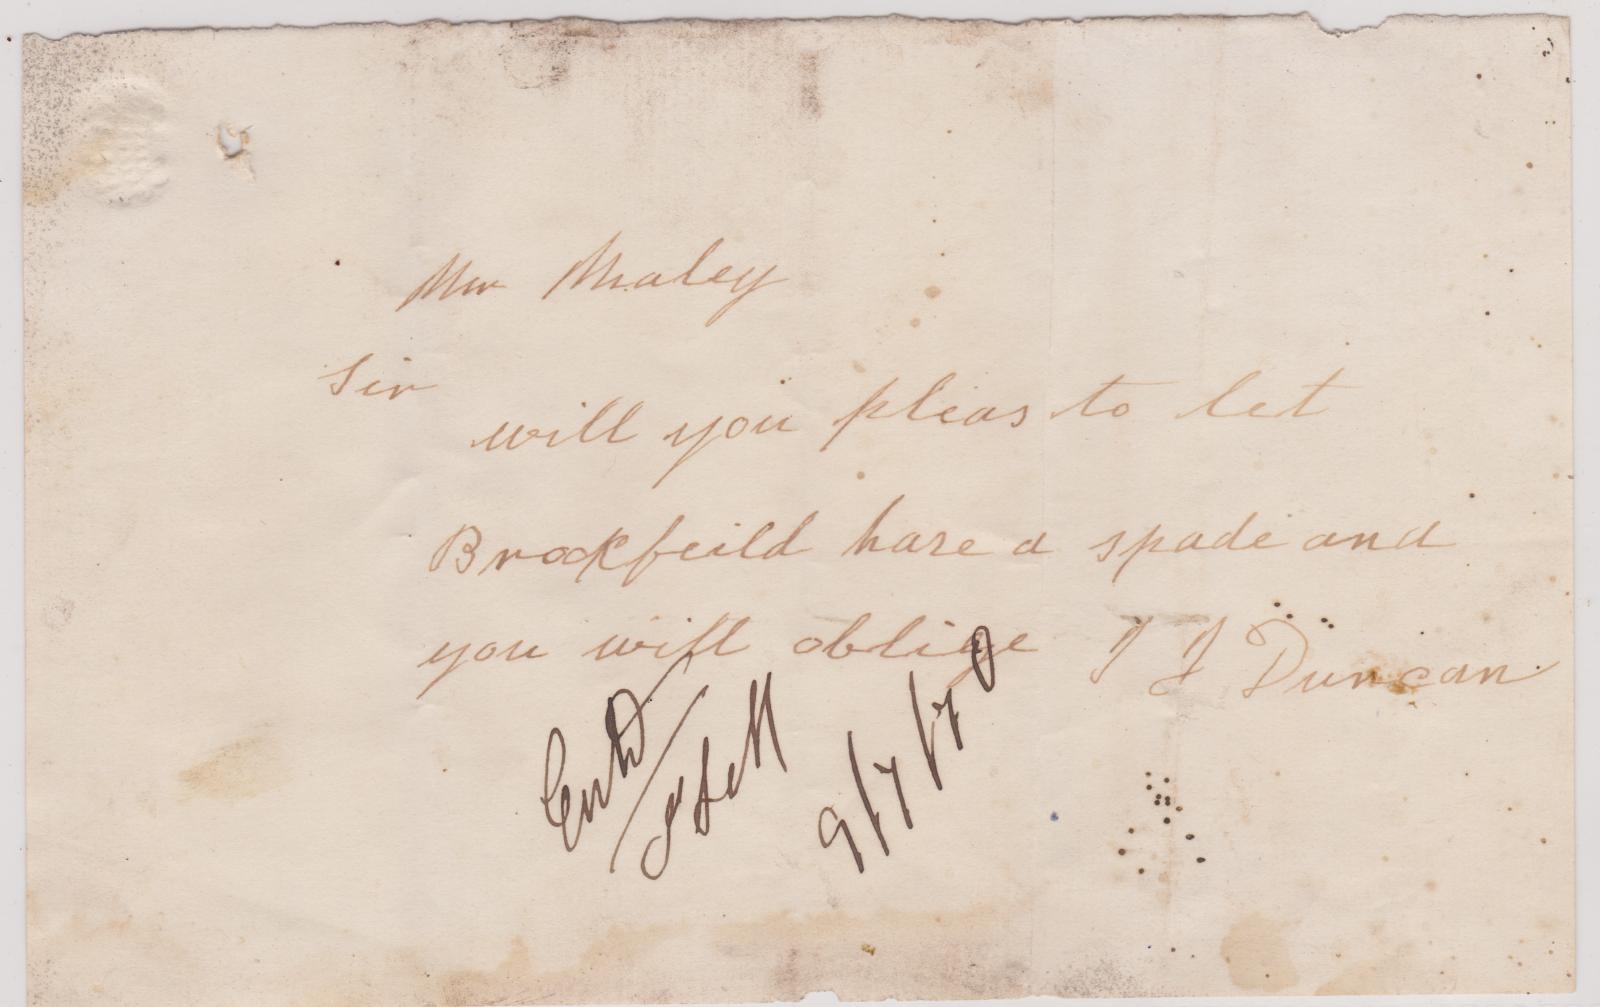 Mr Maley
Sir
will you pleas to let
Brockfeild have a spade and
you will oblige J J Duncan
Entd
9/7/70